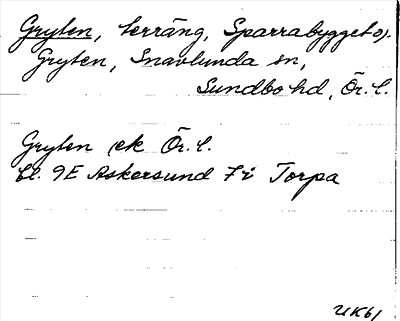 Gryten, terräng, Sparrabygget o).
Gryten, Snavlunda sn,
Sundbo hd, Ör. l.
Gryten ek Ör. l.
bl. 9E Askersund 7i Torpa
UK61